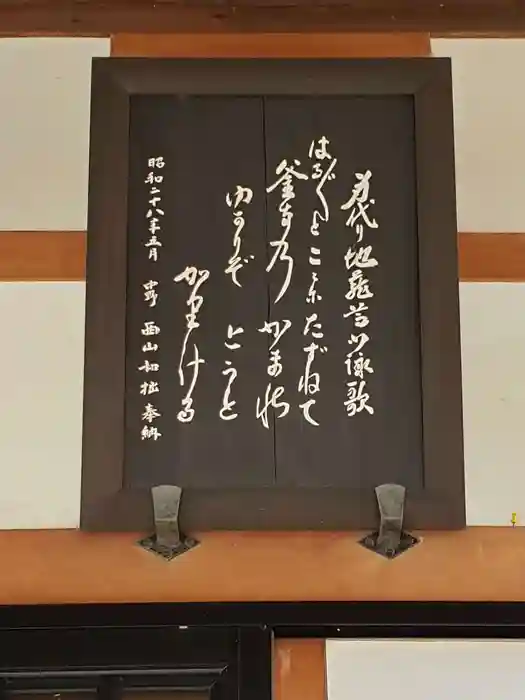 身代り地蔵尊御詠歌
はる／″＼とこゝにたづねて
釜寺乃かま能
ゆかりぞとうと
かりける
昭和二十八年五月 中野 西山如拙 奉納